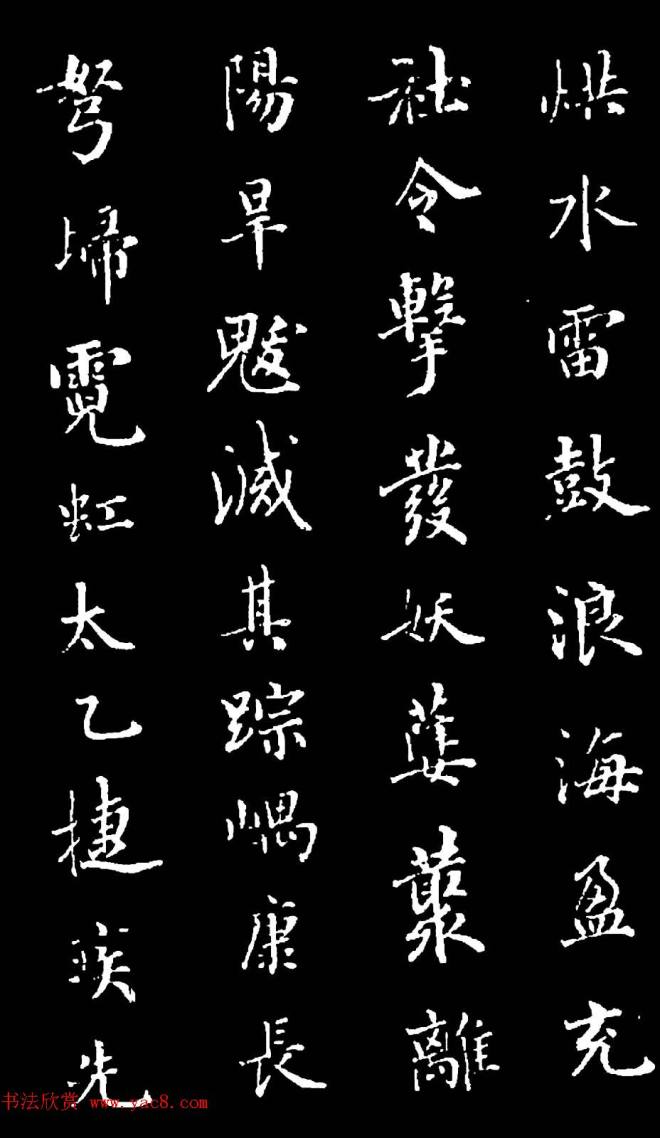 烘水雷鼓浪海盈充
社令擊發妖藂離
陽旱魃滅其踪嵎康長
弩埽霓虹太乙捷疾先
书法欣赏 www.yac8.com